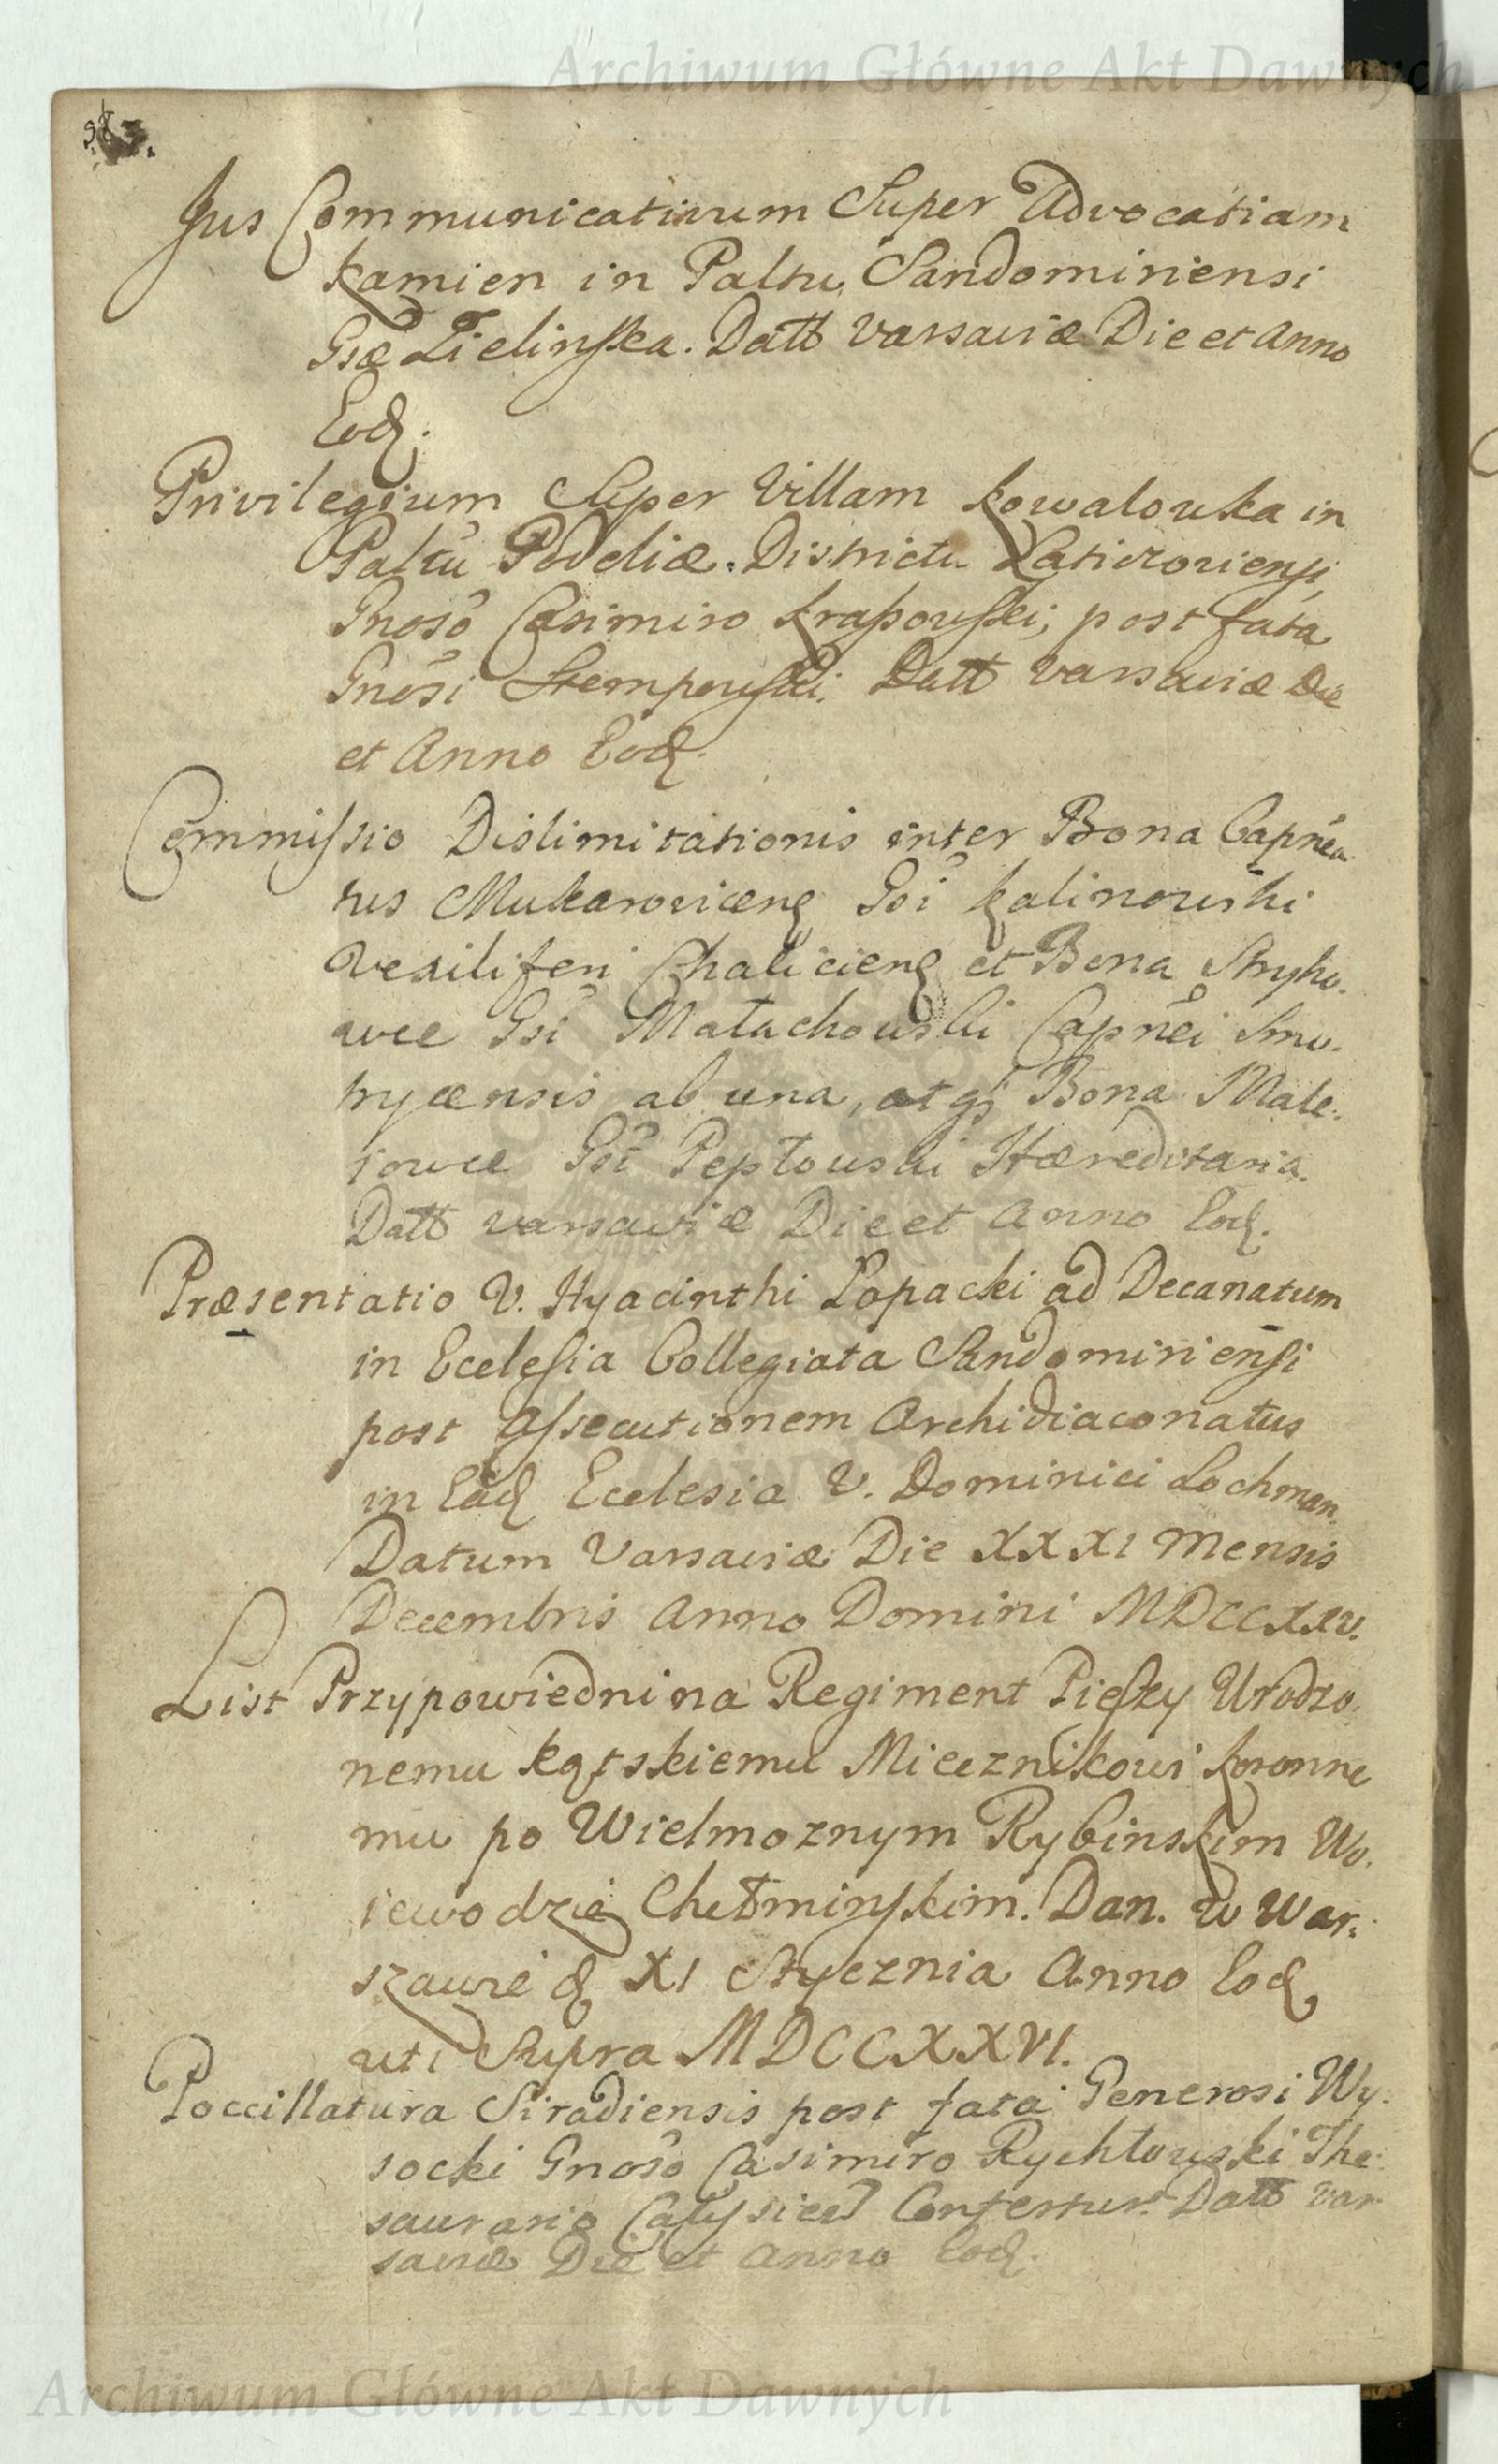 Archiwum Główne Akt Dawnych
Jus Communicativum Super Advocatiam
Kamien in Paltu Sandomiriensi
Gsæ Zielinska. Datt Varsaviæ Die et Anno
Eod.
Privilegium Super Villam Kowalowka in
Paltū Podoliæ Districtu Laticzoviensi,
Gnosō Casimiro Krassowski, post fata
Gnosi Stempowski. Datt Varsaviæ Die
et Anno Eod.
Commissio Dislimitationis inter Bona Capnéa
tus Mukaroviceng Gsi Kalinowski
Vexiliferi Chalicieng et Bona Stryho.
wce Gsi Małachowski Capnéi Smo.
trycensis ab una, atq; Bona Male.
iowce Gsi Pepłowski Hæreditaria.
Datt Varsaviæ Die et Anno Eod.
Præsentatio V. Hyacinthi Łopacki ad Decanatum
in Ecclesia Collegiata Sandomiriensi
post Assecutionem Archidiaconatus
in Eād Ecclesia V. Dominici Lochman.
Datum Varsaviæ Die XXXI Mensis
Decembris Anno Domini MDCCXXV.
List Przypowiedni na Regiment Pieszy Urodzo.
nemu Kątskiemu Miecznikowi Koronne
mu po Wielmoznym Rybinskim Wo.
iewodzie Chełminskim. Dan. w War.
szawie d XI Stycznia Anno Eod
uti Supra MDCCXXVI.
Poccillatura Siradiensis post fata Generosi Wy.
socki Gnosō Casimiro Rychłowski The.
saurario Confertur. Datt Var
saviæ Die et Anno Eod.
Archiwum Główne Akt Dawnych